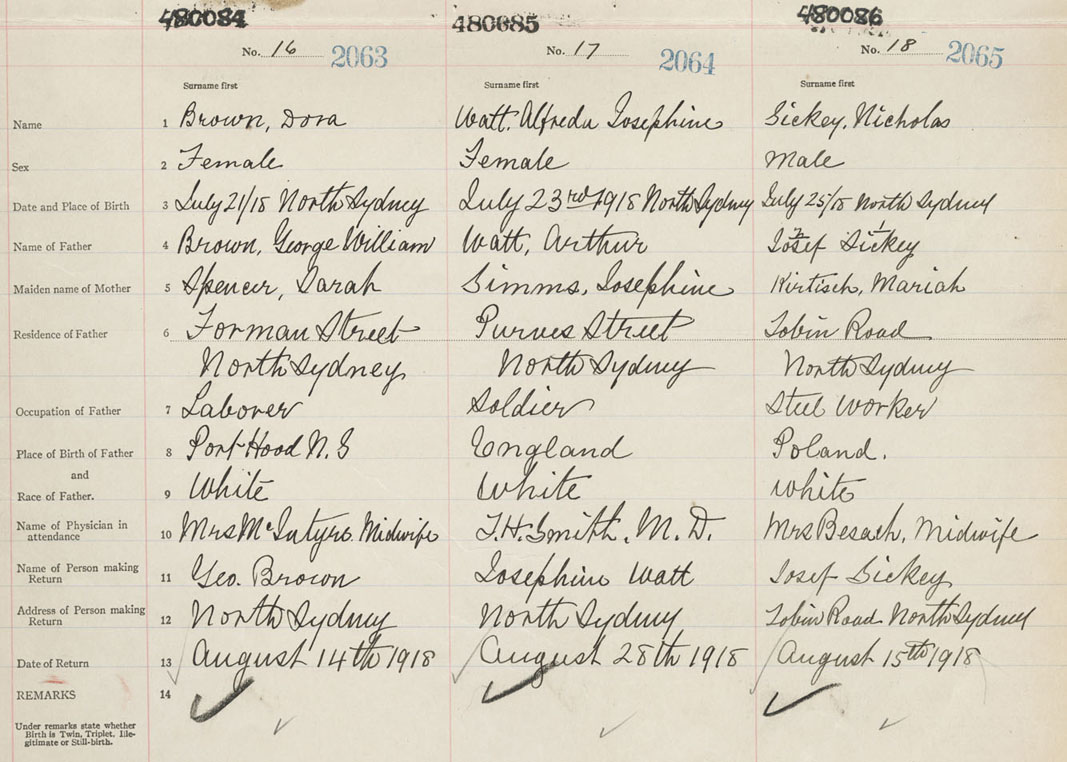 480084 480085 480086
No. 16 2063 No. 17 2064 No. 18 2065
Surname first Surname first Surname first
Name 1 Brown, Dora Watt, Alfreda Josephine Sickey, Nicholas
Sex 2 Female Female Male
Date and Place of Birth 3 July 21/18 North Sydney July 23rd 1918 North Sydney July 25/18 North Sydney
Name of Father 4 Brown, George William Watt, Arthur Josef Sickey
Maiden name of Mother 5 Spencer, Sarah Simms, Josephine Kirtisch, Mariah
Residence of Father 6 Forman Street Purves Street Tobin Road
North Sydney North Sydney North Sydney
Occupation of Father 7 Laborer Soldier Steel Worker
Place of Birth of Father 8 Port Hood N.S England Poland.
and
Race of Father. 9 White White White
Name of Physician in
attendance 10 Mrs McIntyre. Midwife T.H. Smith, M.D. Mrs Besach, Midwife
Name of Person making
Return 11 Geo. Brown Josephine Watt Josef Sickey
Address of Person making
Return 12 North Sydney North Sydney Tobin Road North Sydney
Date of Return 13 August 14th 1918 August 28th 1918 August 15th 1918
REMARKS 14
Under remarks state whether
Birth is Twin, Triplet, Ille-
gitimate or Still-birth.